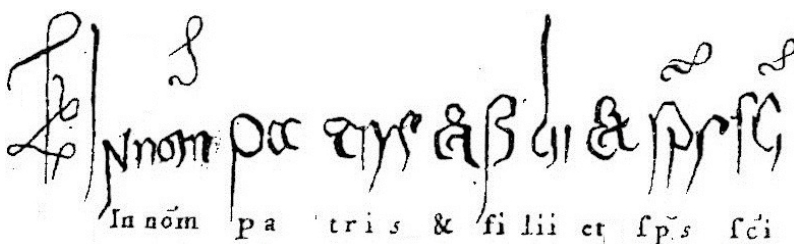 In nom̃ pa tris & fi lii et ſp̃s ſc̃i
In nom̃ pa tris & fi lii et ſp̃s ſc̃i